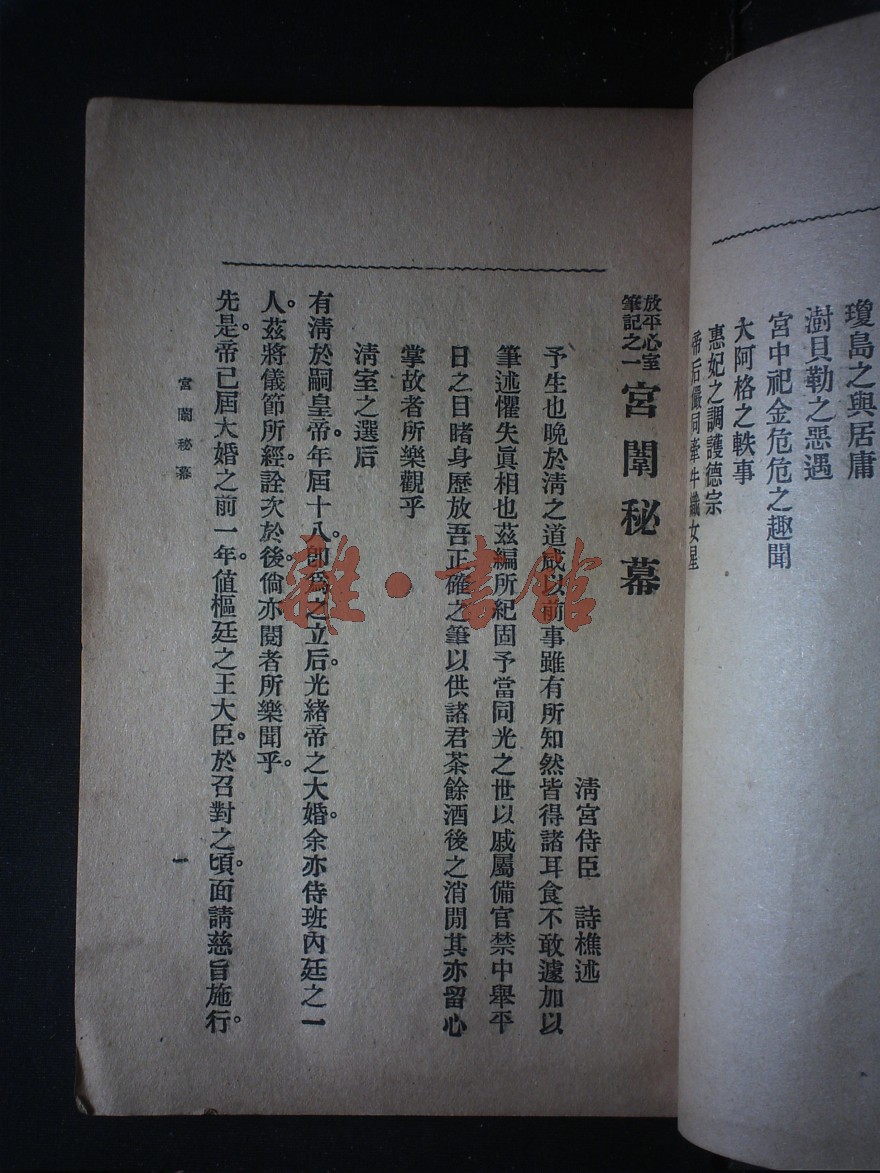 瓊島之與居庸
澍貝勒之惡遇
宮中祀金危危之趣聞
大阿格之軼事
惠妃之調護德宗
帝后儼同牽牛織女星
放平心室
筆記之一
宮闈秘幕
清宮侍臣　詩樵述
予生也晚於淸之道咸以前事雖有所知然皆得諸耳食不敢遽加以
筆述懼失眞相也茲編所紀固予當同光之世以戚屬備官禁中舉平
日之目睹身歷放吾正確之筆以供諸君茶餘酒後之消閒其亦留心
掌故者所樂觀乎
淸室之選后
有淸於嗣皇帝。年屆十八。卽爲之立后。光緒帝之大婚。余亦侍班內廷之一
人。茲將儀節所經。詮次於後。倘亦閱者所樂聞乎。
先是。帝已屆大婚之前一年。値樞廷之王大臣。於召對之頃。面請慈旨施行。
宮闈秘幕
一
雜·書館